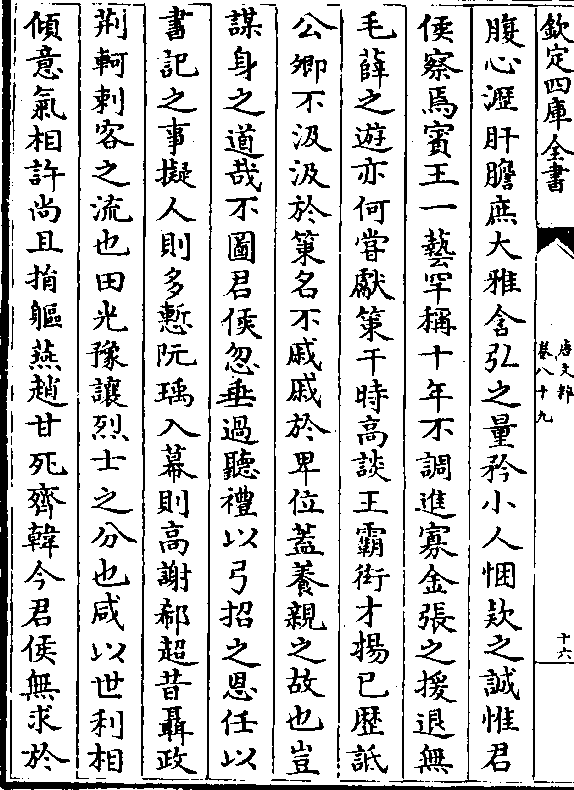 欽定四庫全書
唐文粹
卷八十九
十六
腹心瀝肝膽庶大雅含弘之量矜小人悃欵之誠惟君
侯察焉賔王一藝罕稱十年不調進寡金張之援退無
毛薛之遊亦何甞獻策干時高談王霸衒才揚已歴詆
公卿不汲汲於策名不戚戚於卑位蓋養親之故也豈
謀身之道哉不圖君侯忽垂過聽禮以弓招之恩任以
書記之事擬人則多慙阮瑀入幕則高謝郗超昔聶政
荆軻刺客之流也田光豫讓烈士之分也咸以世利相
傾意氣相許尚且捐軀燕趙甘死齊韓今君侯無求於